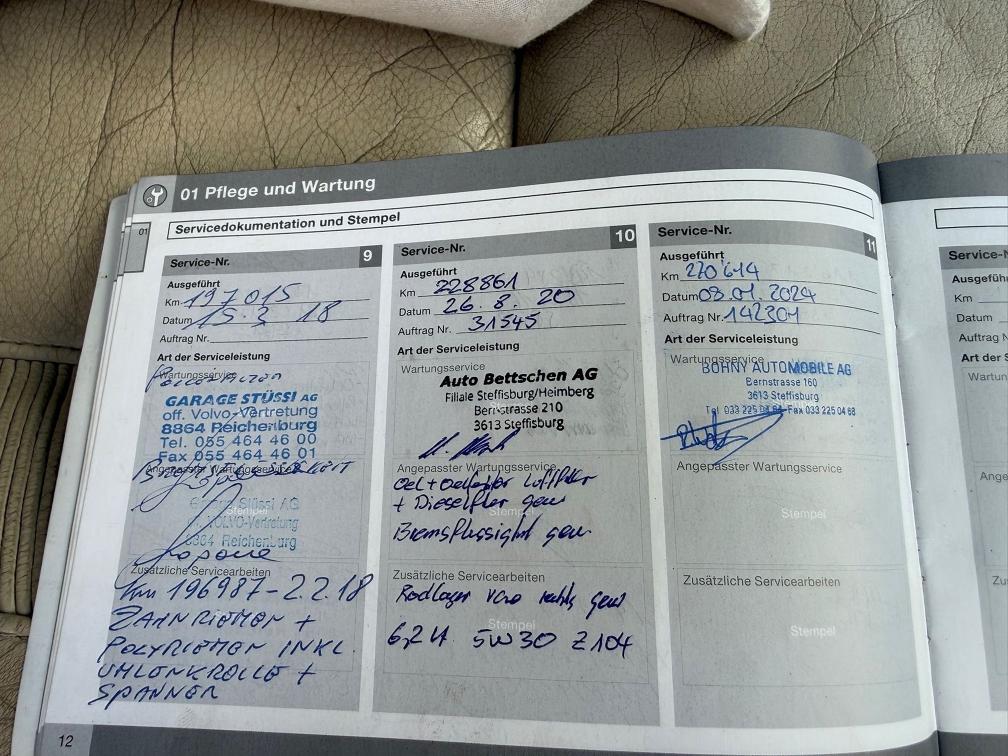 01 Pflege und Wartung
01
Servicedokumentation und Stempel
Service-Nr. 9
Ausgeführt
Km 197015
Datum 15.3 18
Auftrag Nr.
Art der Serviceleistung
Wartungsservice
GARAGE STÜSSI AG
off. Volvo-Vertretung
8864 Reichenburg
Tel. 055 464 46 00
Fax 055 464 46 01
Angepasster Wartungsservice
Stüssi AG
Stempel
VOLVO-Vertretung
8864 Reichenburg
Zusätzliche Servicearbeiten
Km 196987-2.2.18
ZAHNRIEMEN +
POLYRIEMEN INKL.
UMLENKROLLE +
SPANNER
Service-Nr. 10
Ausgeführt
Km 228861
Datum 26.8. 20
Auftrag Nr. 31545
Art der Serviceleistung
Wartungsservice
Auto Bettschen AG
Filiale Steffisburg/Heimberg
Bernstrasse 210
3613 Steffisburg
Angepasster Wartungsservice
Oel + Oelfilter Luftfilter
+ Dieselfilter gew
Stempel
Bremsflüssigkeit gew
Zusätzliche Servicearbeiten
Radlager vorne rechts gew
Stempel
6,2 lt 5W30 Z104
Service-Nr. 11
Ausgeführt
Km 270'614
Datum 08.01.2024
Auftrag Nr. 142301
Art der Serviceleistung
Wartungsservice
BÖHNY AUTOMOBILE AG
Bernstrasse 160
3613 Steffisburg
Tel 033 225 04 Fax 033 225 04 68
Angepasster Wartungsservice
Stempel
Zusätzliche Servicearbeiten
Stempel
12
Service-N
Ausgefüh
Km
Datum
Auftrag N
Art der S
Wartun
Ange
Zusätzl